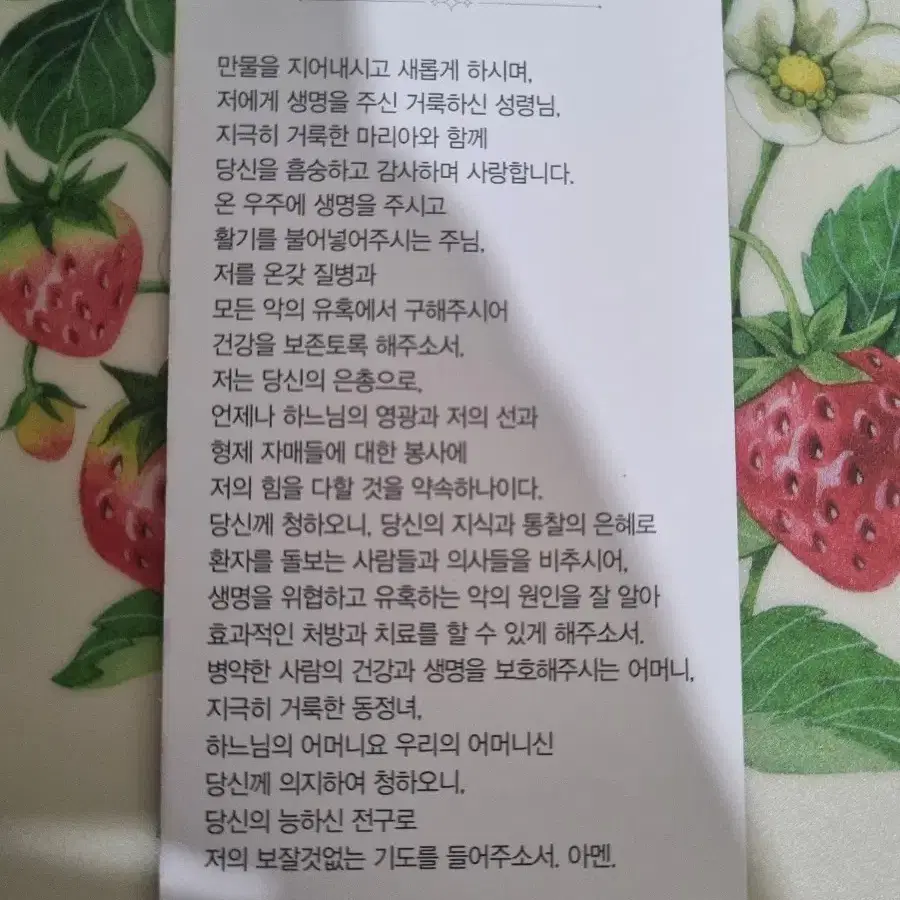 만물을 지어내시고 새롭게 하시며,
저에게 생명을 주신 거룩하신 성령님,
지극히 거룩한 마리아와 함께
당신을 흠숭하고 감사하며 사랑합니다.
온 우주에 생명을 주시고
활기를 불어넣어주시는 주님,
저를 온갖 질병과
모든 악의 유혹에서 구해주시어
건강을 보존토록 해주소서.
저는 당신의 은총으로,
언제나 하느님의 영광과 저의 선과
형제 자매들에 대한 봉사에
저의 힘을 다할 것을 약속하나이다.
당신께 청하오니, 당신의 지식과 통찰의 은혜로
환자를 돌보는 사람들과 의사들을 비추시어,
생명을 위협하고 유혹하는 악의 원인을 잘 알아
효과적인 처방과 치료를 할 수 있게 해주소서.
병약한 사람의 건강과 생명을 보호해주시는 어머니,
지극히 거룩한 동정녀,
하느님의 어머니요 우리의 어머니신
당신께 의지하여 청하오니,
당신의 능하신 전구로
저의 보잘것없는 기도를 들어주소서. 아멘.